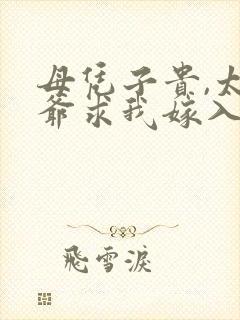 母凭子贵,太
爷求我嫁入
飛雪淚